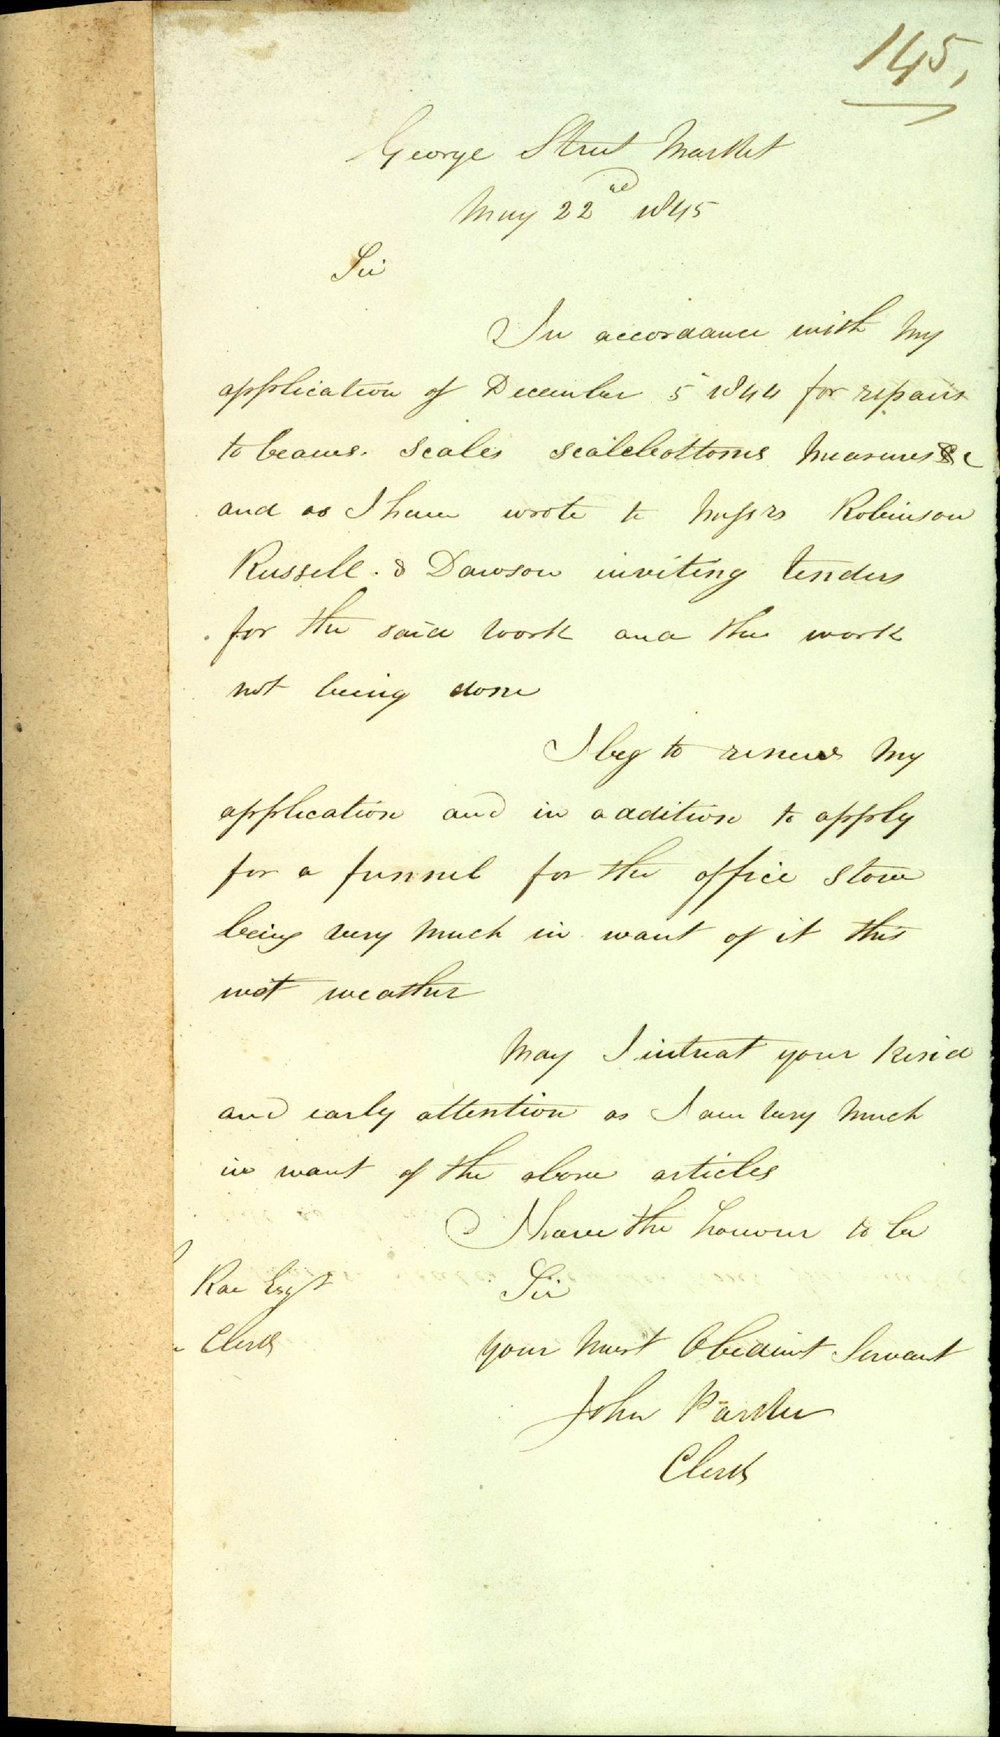 145,
George Street Market
May 22nd 1845
Sir
In accordance with my
application of December 5 1844 for repairs
to beams. scales scalebottoms measures &c
and as I have wrote to Messrs Robinson
Russell. & Dawson inviting tenders
for the said work and the work
not being done
I beg to renew my
application and in addition to apply
for a funnel for the office stove
being very much in want of it this
wet weather
May I intreat your kind
and early attention as I am very much
in want of the above articles
I have the honour to be
Rae Esqr Sir
Clerk your most Obedient Servant
John Parker
Clerk